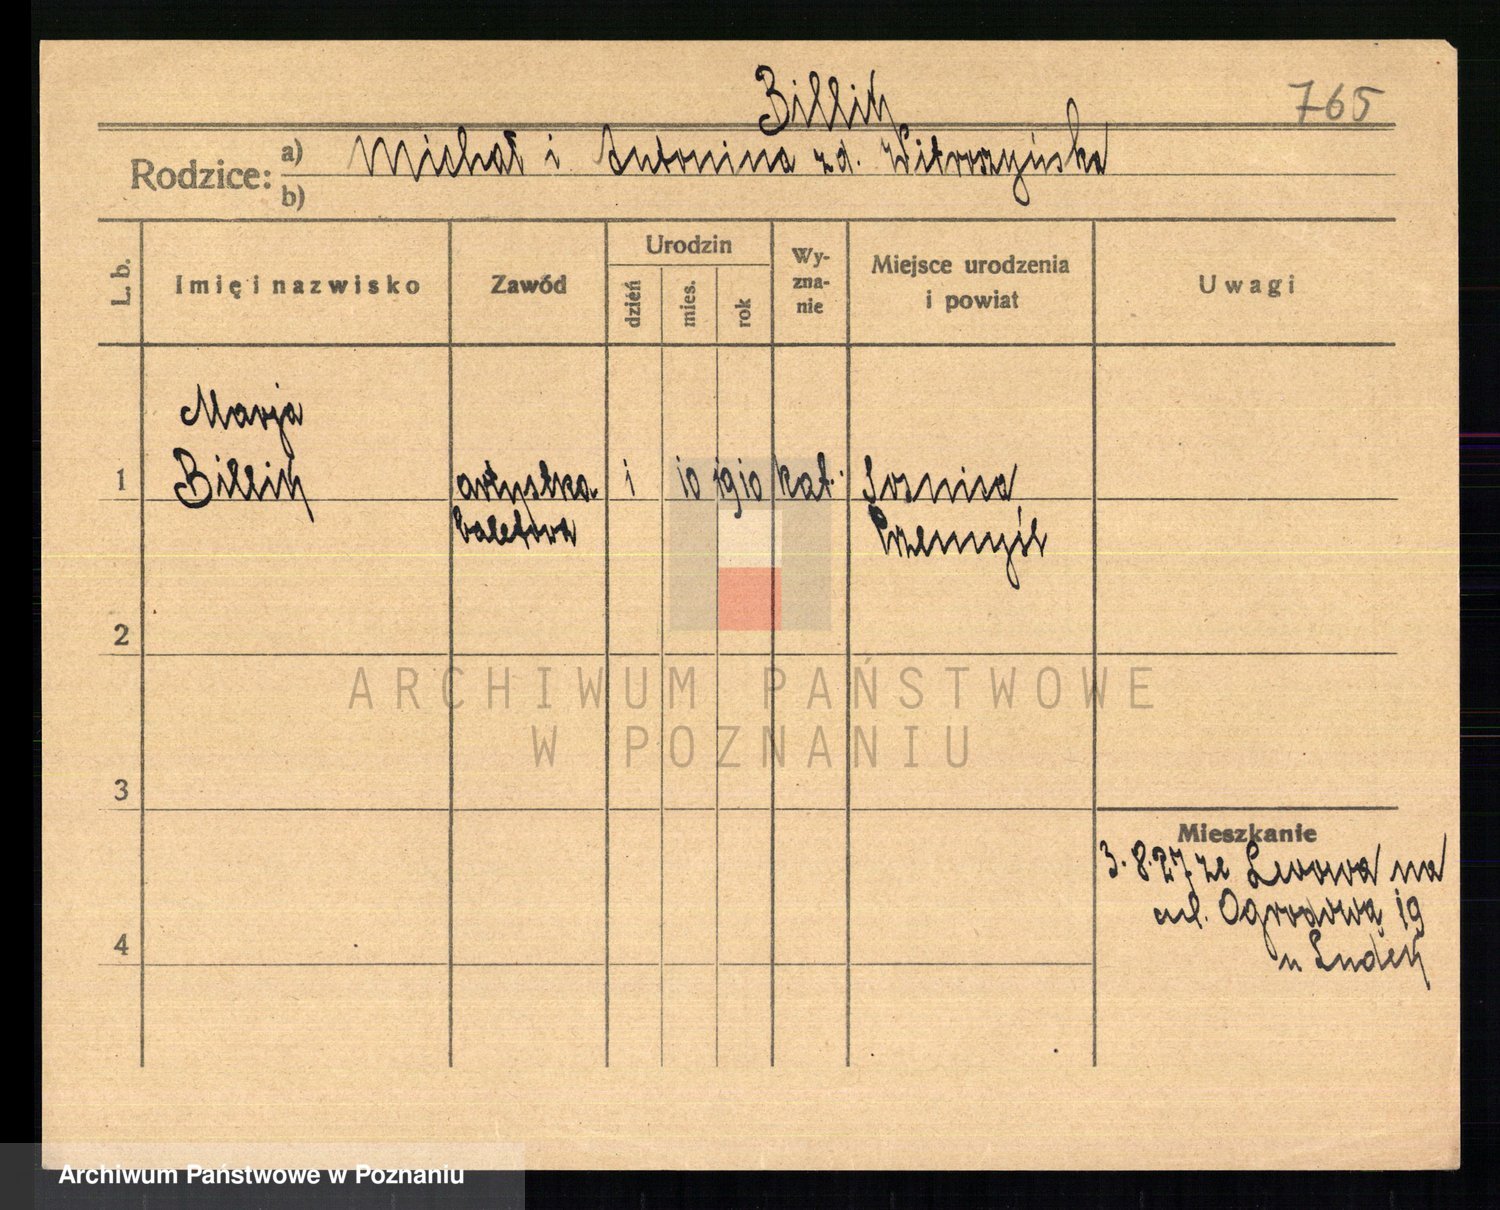 Billik
765
Rodzice:
a) Michał i Antonina zd. Witoszyńska
b)
L. b.
Imię i nazwisko
Zawód
Urodzin
dzień
mies.
rok
Wy-
zna-
nie
Miejsce urodzenia
i powiat
Uwagi
Marja
1 Billik artystka 1 10 1910 kat. Sosnica
baletowa Przemyśl
2
3
4
Mieszkanie
3.8.27 ze Lwowa na
ul. Ogrodową 19
u
ARCHIWUM PAŃSTWOWE
W POZNANIU
Archiwum Państwowe w Poznaniu